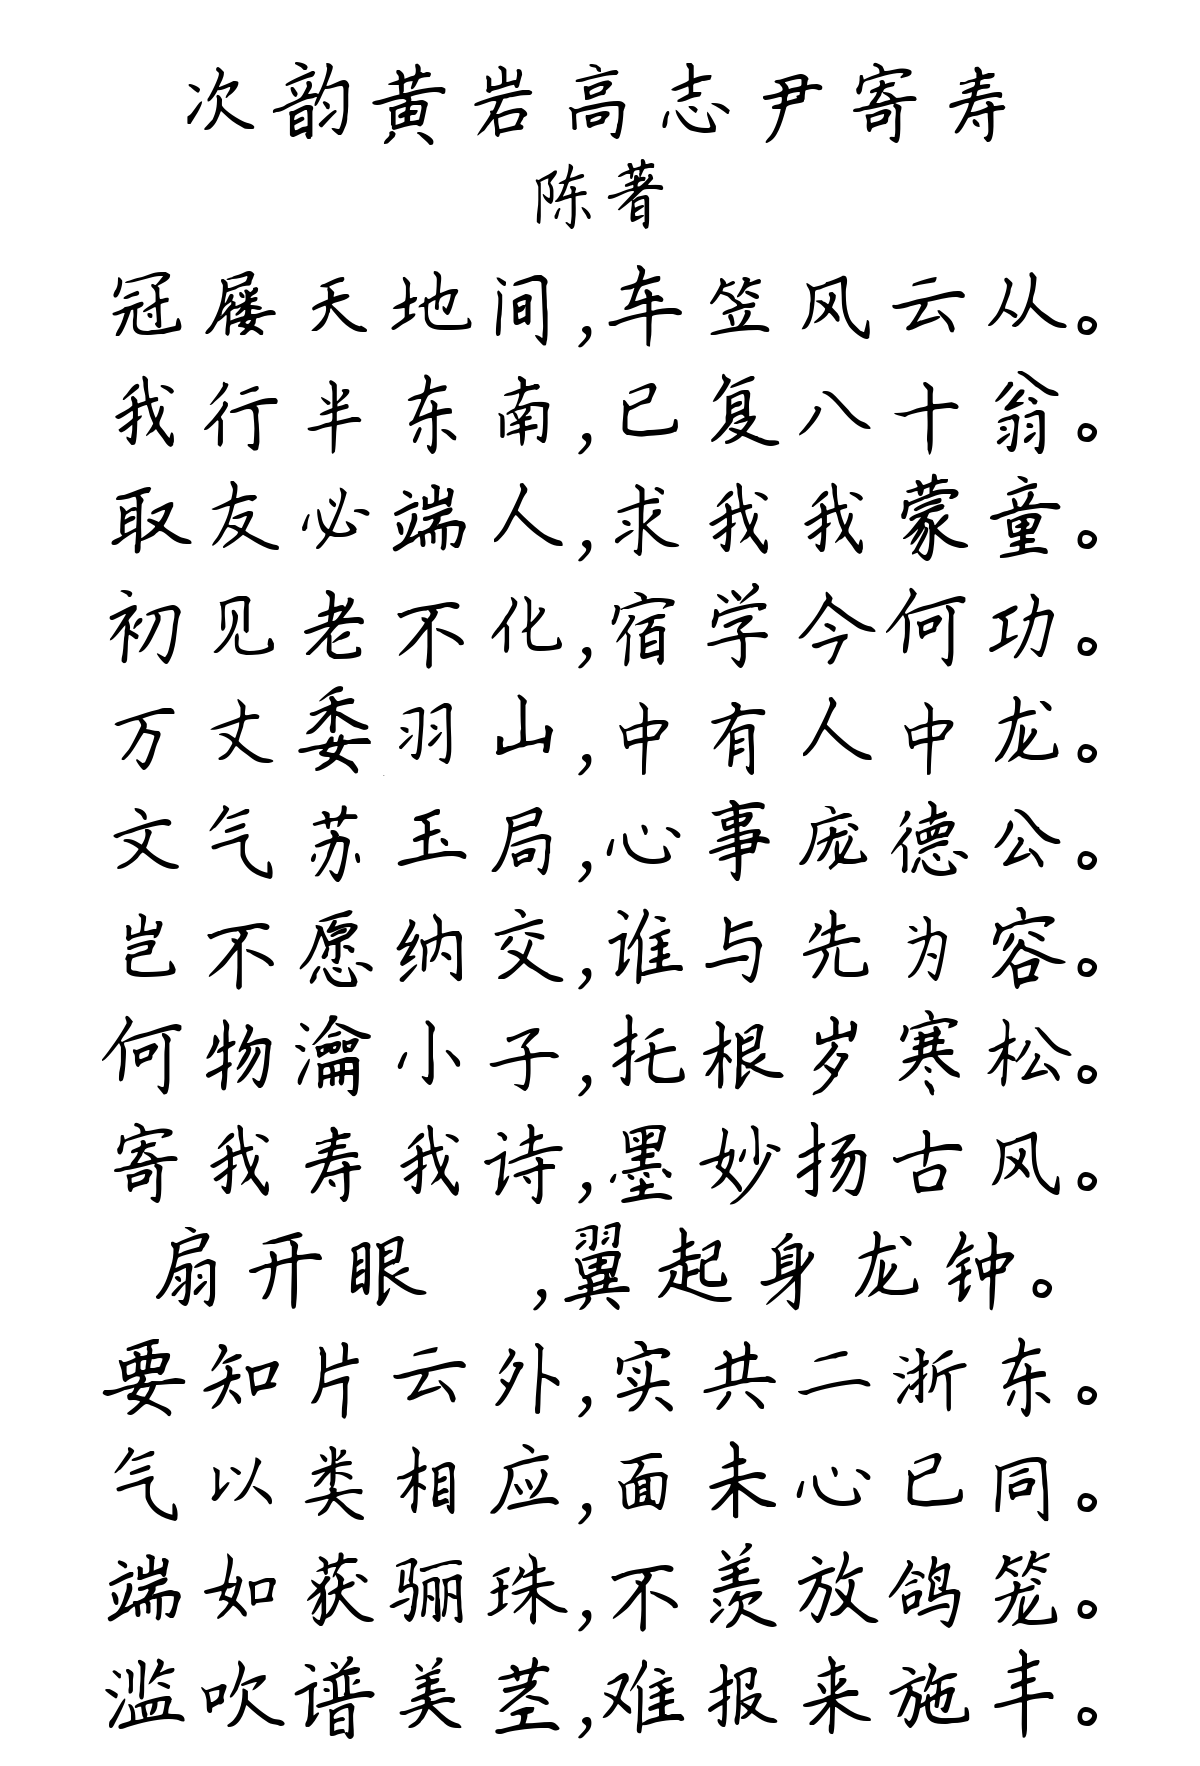 次韵黄岩高志尹寄寿
陈著
冠屦天地间,车笠风云从。
我行半东南,已复八十翁。
取友必端人,求我我蒙童。
初见老不化,宿学今何功。
万丈委羽山,中有人中龙。
文气苏玉局,心事庞德公。
岂不愿纳交,谁与先为容。
何物瀹小子,托根岁寒松。
寄我寿我诗,墨妙扬古风。
扇开眼 ,翼起身龙钟。
要知片云外,实共二浙东。
气以类相应,面未心已同。
端如获骊珠,不羡放鸽笼。
滥吹谱美茎,难报来施丰。